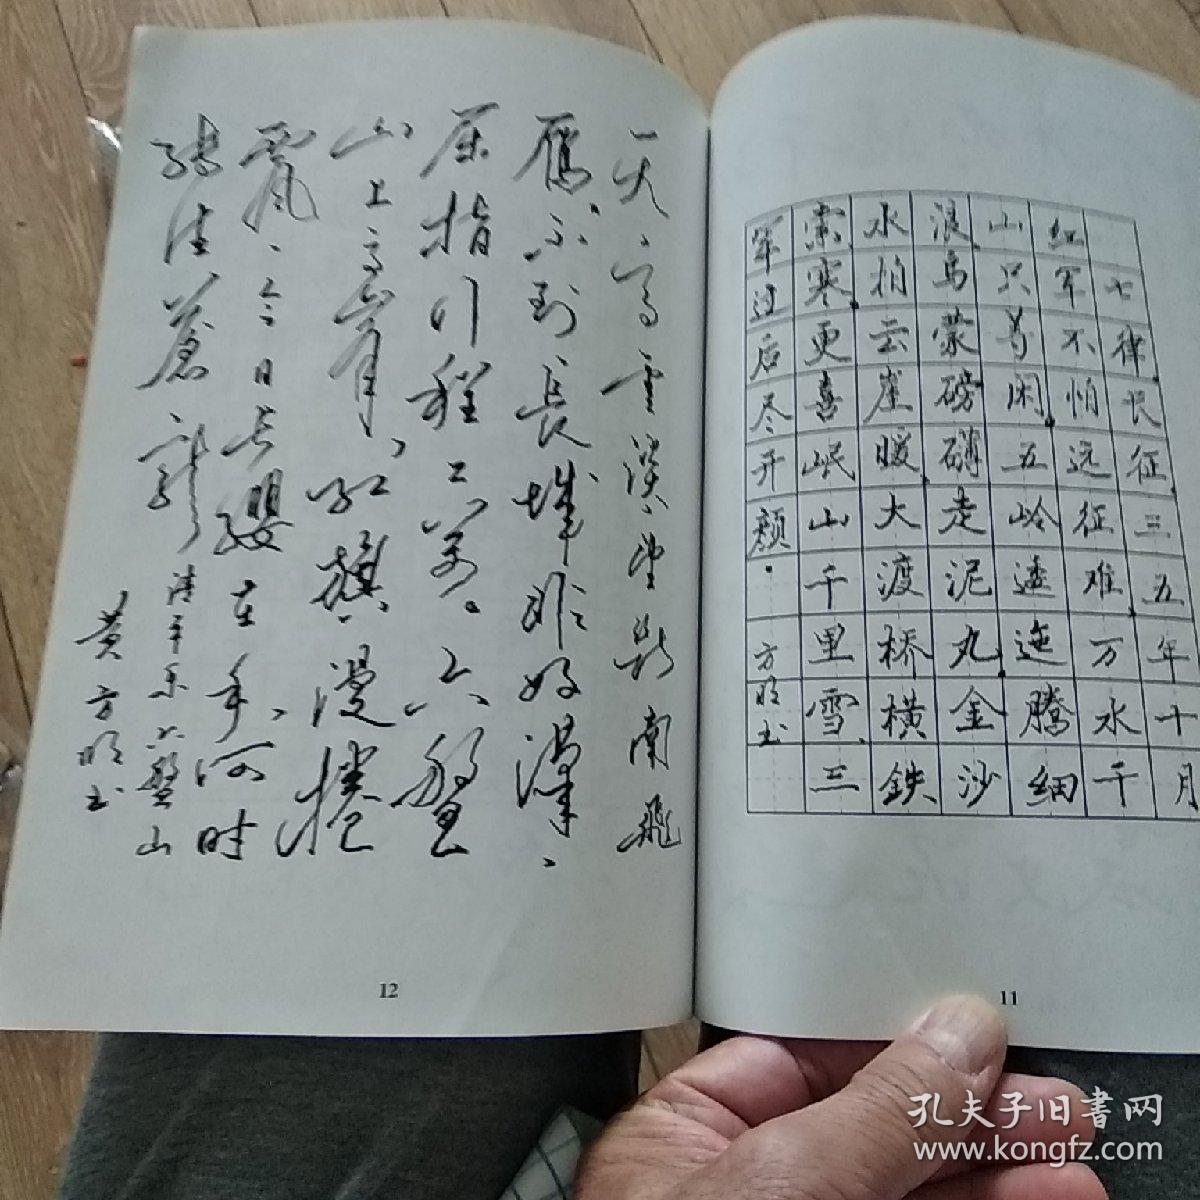 七律，长征，三五年十月
红军不怕远征难，万水千
山只等闲。五岭逶迤腾细
浪，乌蒙磅礴走泥丸。金沙
水拍云崖暖，大渡桥横鉄
索寒。更喜岷山千里雪，三
军过后尽开颜。方明书
11
天高雲淡，望断南飛
雁、不到長城非好漢、
屈指行程二万。六盤
山上高峯、红旗漫捲
西風、今日长缨在手、何时
缚住蒼龙 清平乐六盤山
黄方明书
12
孔夫子旧书网
www.kongfz.com